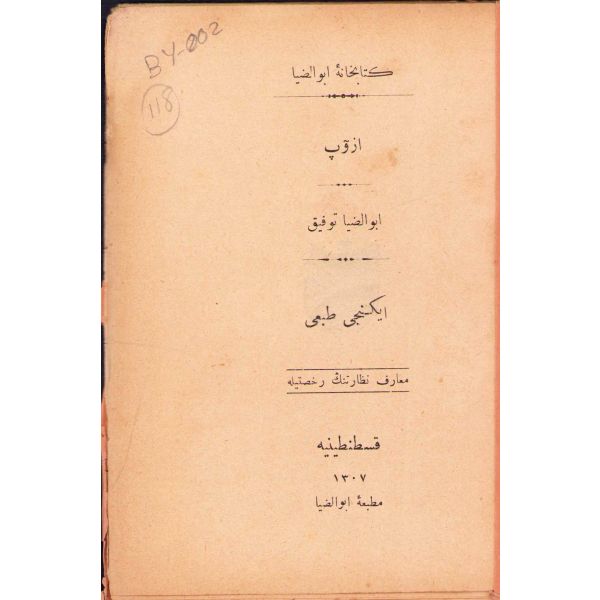 BY-002
118
كتابخانهٔ ابوالضيا
ازوپ
ابوالضيا توفيق
ايكنجى طبعى
معارف نظارتنڭ رخصتيله
قسطنطينيه
١٣٠٧
مطبعهٔ ابوالضيا